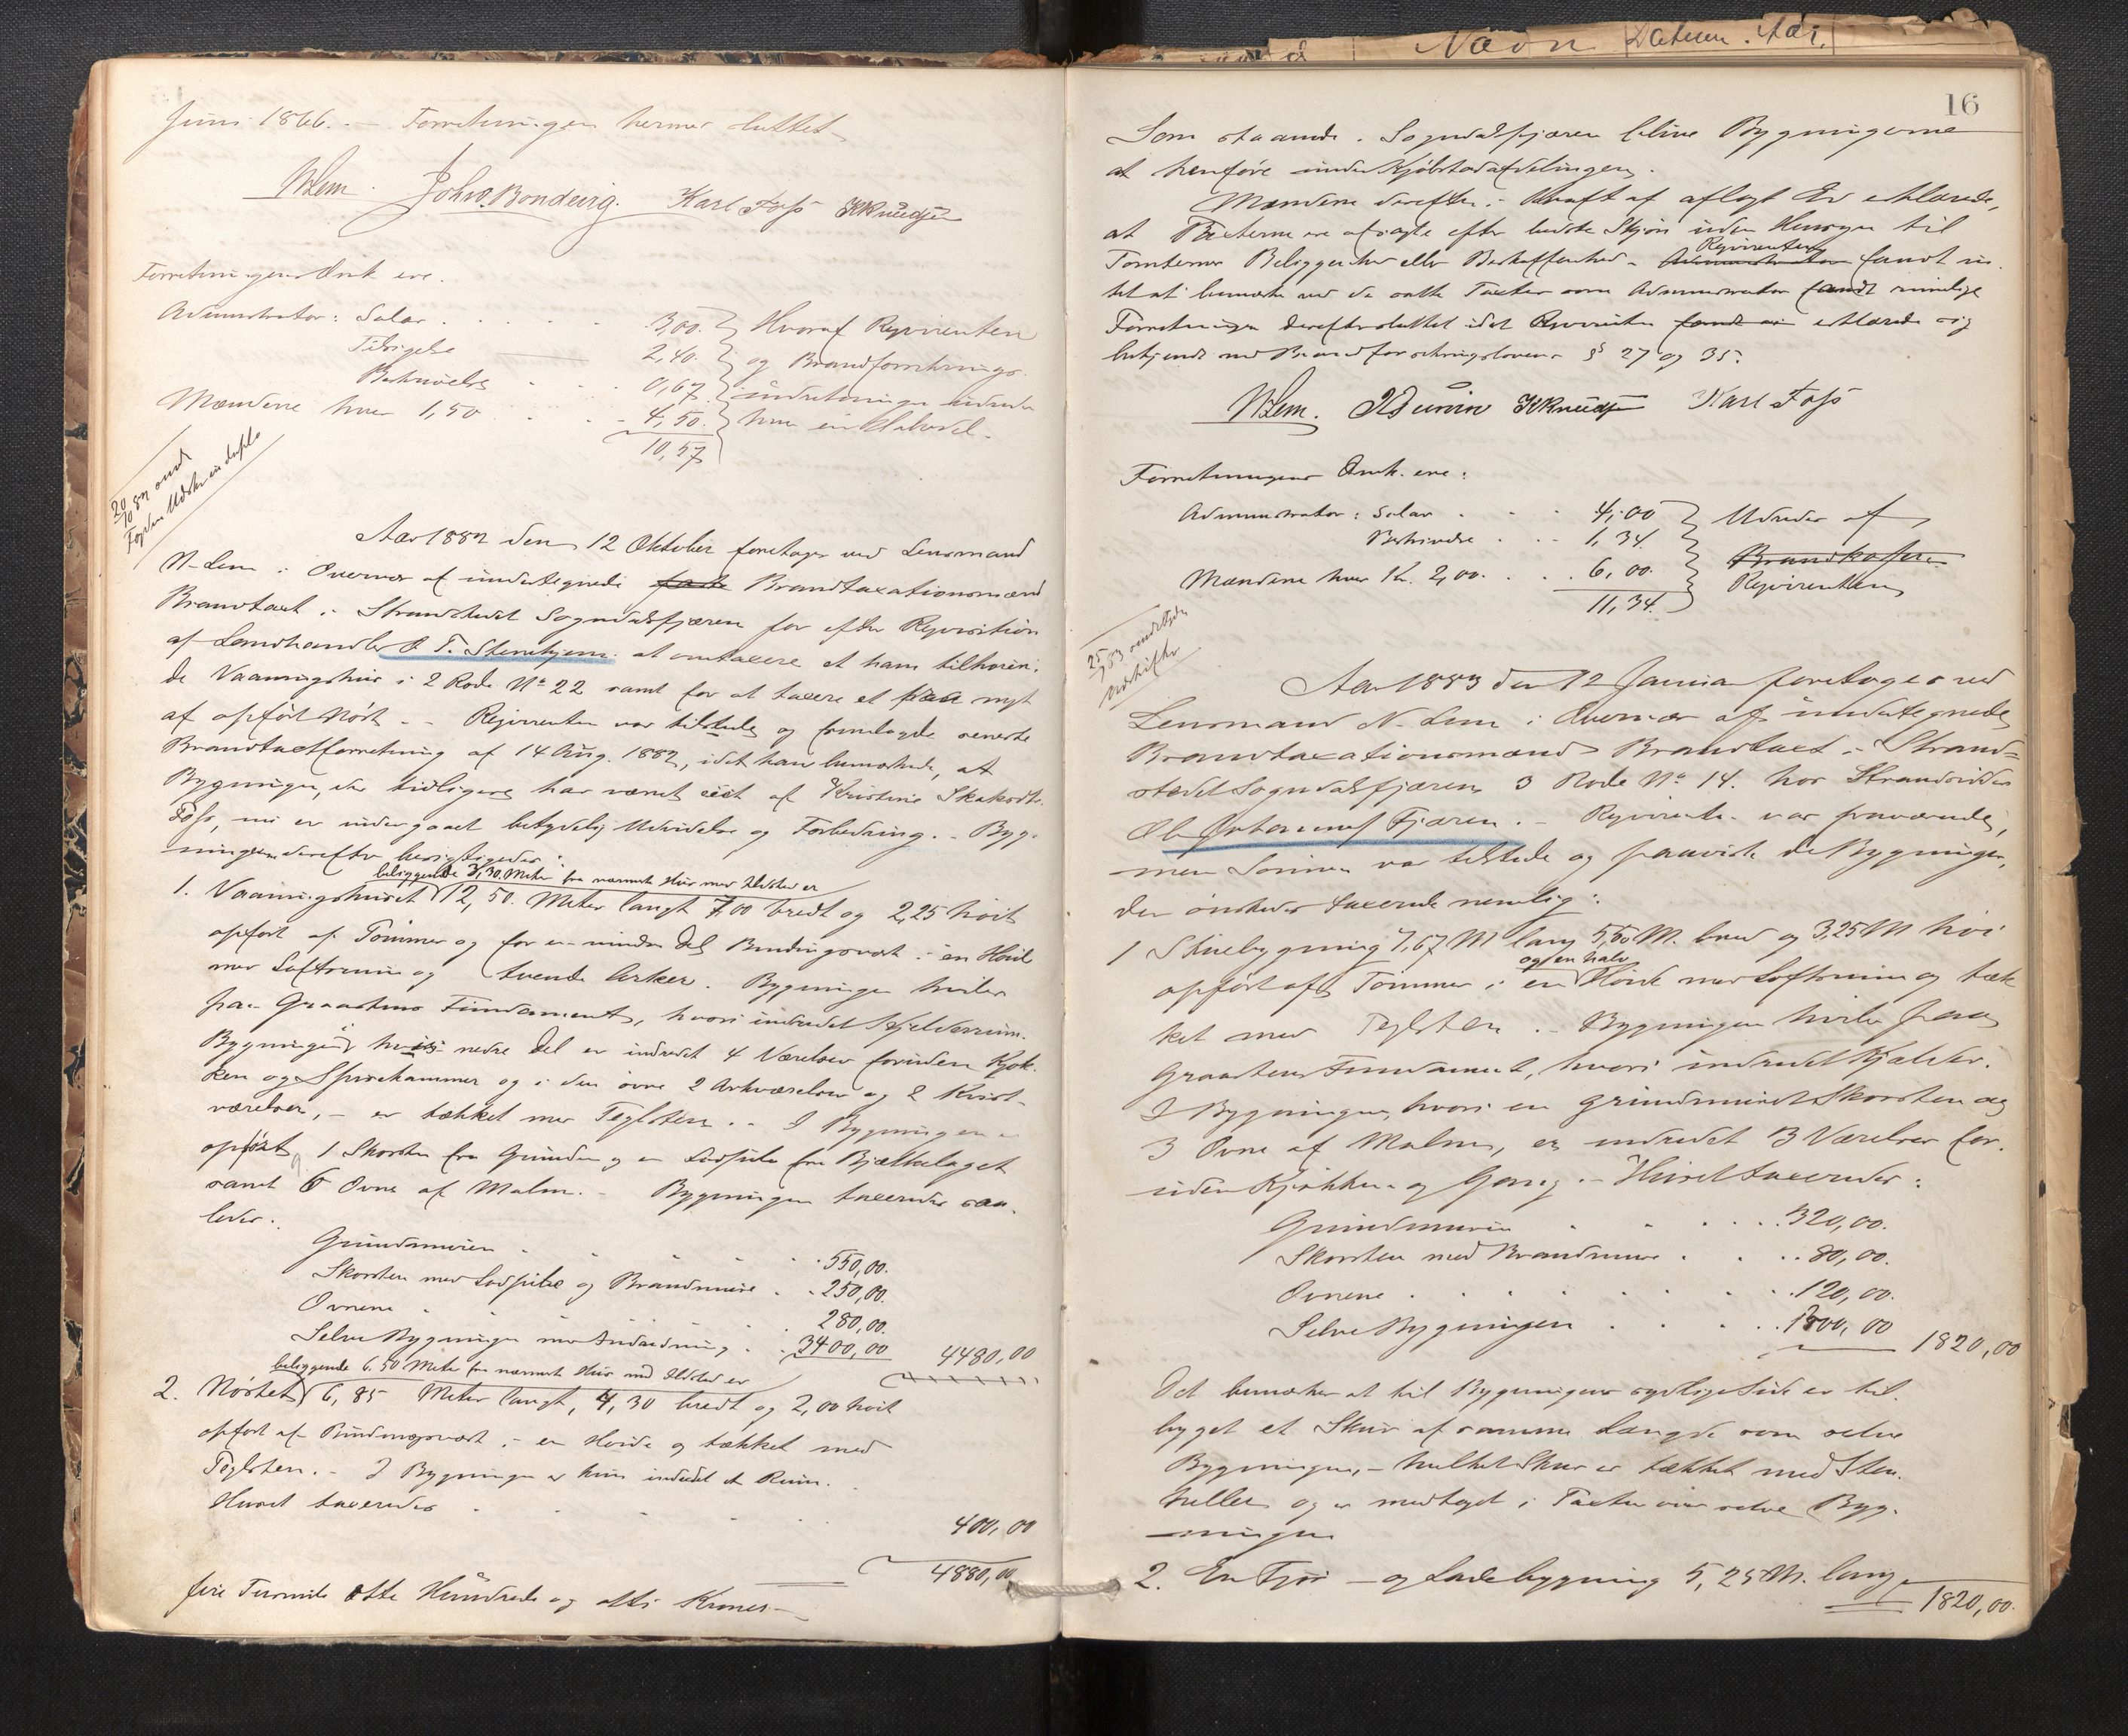 Juni 1866. — Forretningen hermed sluttet
NLem. Joh. O. Bondevig. Karl Foss KKnudsen
Forretningens Omk. ere.
Administrator: Salær . . . 3,00.
Tilsigelse 2,40.
Beskrivelse . . . 0,67.
Mændene hver 1,50 . . . 4,50.
10,57
Hvoraf Reqvirenten
og Brandforsiknings-
indretningen udreder
hver en Halvdel.
20/10 82 sendt
Fogden Udskr. in duplo
Aar 1882 den 12 Oktober foretoges ved Lensmand
N. Lem i Overvær af undertegnede faste Brandtaxationsmænd
Brandtaxt i Strandstedet Sogndalsfjæren for efter Reqvisition
af Landhandler O T. Stenehjem at omtaxere et ham tilhøren-
de Vaaningshus i 2 Rode No 22 samt for at taxere et nyt
af opført Nøst. - Reqvirenten var tilstede og fremlagde seneste
Brandtaxtforretning af 14 Aug. 1882, idet han bemærkede, at
Bygningen, der tidligere har været eiet af Kristine Skakesdtr.
Foss, nu er undergaaet betydelig Udvidelse og Forbedring. - Byg-
ningerne derefter besigtigedes:
beliggende 3,30 Meter fra nærmeste Hus med Ildsted er
1. Vaaningshuset 12,50 Meter langt 7,00 bredt og 2,25 høit
opført af Tømmer og for en mindre Del Bindingsværk i en Høide
med Loftsrum og tvende Arker. Bygningen hviler
paa Graastens Fundament, hvori indredet Kjelderrum.
Bygningen, i hvis nedre Del er indredet 4 Værelser foruden Kjøk-
ken og Spisekammer og i den øvre 2 Arkværelser og 2 Kvist-
værelser, - er tækket med Teglsten. - I Bygningen er
opført 1 Skorsten fra Grunden og en Lodpibe fra Bjælkelaget
samt 6 Ovne af Malm. - Bygningen taxeredes saa-
ledes:
Grundmuren . . . 550,00.
Skorsten med Lodpibe og Brandmure . . 250,00.
Ovnene . . . 280,00.
Selve Bygningen med Indredning . . 3400,00 4480,00
beliggende 6,50 Meter fra nærmeste Hus med Ildsted er
2. Nøstet 6,85 Meter langt, 4,30 bredt og 2,00 høit
opført af Bindingsværk i en Høide og tækket med
Teglsten. - I Bygningen er kun indredet et Rum.
Huset taxeredes . . . 400,00
4880,00
fire Tusinde otte Hundrede og otti Kroner
Nævn Datum. Aar.
16
Som staaende i Sogndalsfjæren blive Bygningerne
at henføre under Kjøbstadafdelingen.
Mændene derefter i Kraft af aflagt Ed erklærede,
at Taxterne ere afsagte efter bedste Skjøn uden Hensyn til
Reqvirenten
Tomternes Beliggenhed eller Beskaffenhed. Administrator fandt in-
tet at bemærke ved de satte Taxter som Administrator fandt rimelige
Forretningen derefter sluttet idet Reqvirenten erklærede sig
bekjendt med Brandforsikringslovens §§ 27 og 35.
NLem. KKnudsen Karl Foss
Forretningens Omk. ere:
Administrator: Salær . . . 4,00
Beskrivelse . . . 1,34.
Mændene hver Kr. 2,00. . . . 6,00.
11,34.
Udredes af
Brandkassen
Reqvirenten
25/1 83 sendt Fgdn
Udskrifter
Aar 1883 den 12 Januar foretoges ved
Lensmand N. Lem i Overvær af undertegnede
Brandtaxationsmænd Brandtaxt i Strand-
stedet Sogndalsfjæren 3 Rode No 14. hos Strandsidder
Fjæren. - Reqvirenten var fraværende,
men Sønnen var tilstede og paaviste de Bygninger,
der ønskedes taxerede nemlig:
1 Stuebygning 7,67 M lang 5,60 M. bred og 3,25 M høi
og en halv
opført af Tømmer i en Høide med Loftsrum og tæk-
ket med Teglsten. - Bygningen hviler paa
Graastens Fundament, hvori indredet Kjælder.
I Bygningen, hvori en grundmuret Skorsten og
3 Ovne af Malm, er indredet 3 Værelser for-
uden Kjøkken og Gang. - Huset taxeredes:
Grundmuren . . . 320,00.
Skorsten med Brandmure . . . 80,00.
Ovnene . . . 120,00.
Selve Bygningen . . . 1300,00 1820,00
Det bemærkes at til Bygningens sydlige Side er til-
bygget et Skur af samme Længde som selve
Bygningen, - hvilket Skur er tækket med Sten-
heller og er medtaget i Taxten over selve Byg-
ningen
2. En Fjøs- og Ladebygning 5,25 M. lang
1820,00.